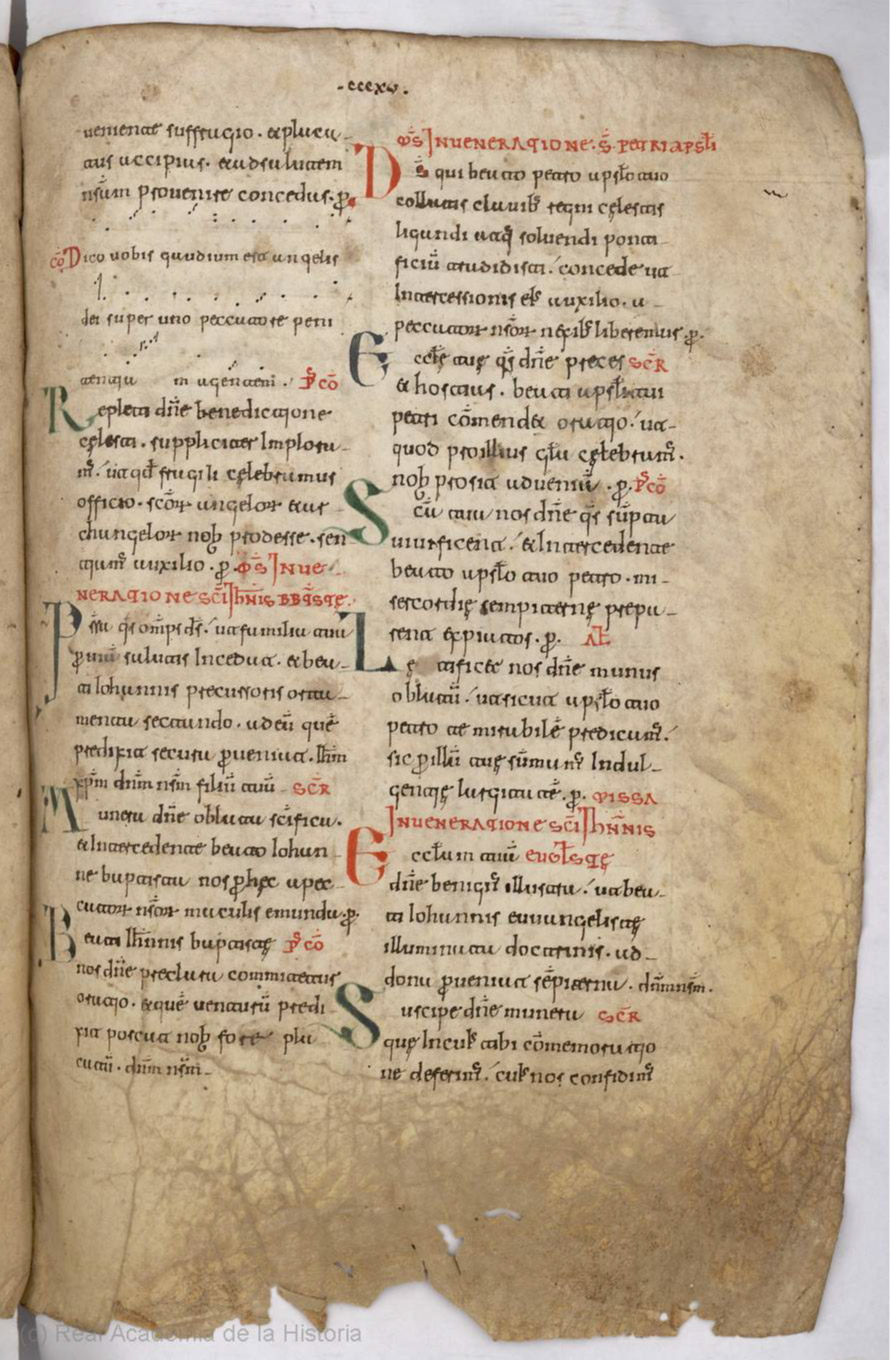 ·cccxv·
ueniente suffragio · & placa
tus accipias · & ad salutem
nr̄am prouenire concedas · ꝑ
cō Dico uobis gaudium est angelis
dei super uno peccatore peni
tentiam agentem · P̄ cō
Repleti dn̄e benedictione
cęlesti · suppliciter Implora
m̄ · ut qđ fragili cęlebramus
officio · scōꝝ angeloꝝ atus
changeloꝝ nob prodesse · sen
tiam̄ auxilio · ꝑ · ōS̄ IN UE
NERATIONE SC̄I IHN̄NIS BBTSTĘ
Psta qs om̄ps ds̄ · ut familia tua
ꝑ uiam salutis Inceda& · & bea
ti Iohannis precussoris orta
menta sectando · ad eū quē
predixit secura ꝑueniat · Ihm̄
xp̄m dnm̄ nsm̄ filiū tuū · SCR
Munera dn̄e oblata scīfica ·
& Intercedente beato Iohan
ne baptista nos ꝑ hęc a pec
catoꝝ nr̄oꝝ maculis emunda · ꝑ ·
Beati Ihn̄nis baptistę P̄ cō
nos dn̄e preclara commitetur
oratio · & quē uenturū predi
xit poscat nob fore pla
catū · dnm̄ nsm̄
ōS̄ IN UENERATIONE · S̄ · PETRI APSŁI
Ds̄ qui beato petro apsło tuo
collatis clauib regni cęlestis
ligandi atq̄ soluendi ponti
ficiū tradidisti · concede ut
Intercessionis ei auxilio · a
peccatoꝝ nr̄oꝝ nexib liberemur ꝑ ·
Eccłę tuę qs dn̄e preces SCR
& hostias · beati apsłi tui
petri cōmend& oratio · ut
quod pro illius głia cęlebram̄ ·
nob prosit ad ueniā · ꝑ · P̄ cō
Scā tua nos dn̄e qs sūpta
uiuificent · & Intercedente
beato apsło tuo petro · mi
sericordię sempiternę prepa
rent expiatos · ꝑ · AŁ
Lętificet nos dn̄e munus
oblatū · ut sicut apsło tuo
petro te mirabilē predicam̄ ·
sic ꝑ illū tuę sūmam̄ Indul
gentię largitatē · ꝑ · MISSA
IN UENERATIONE SC̄I IHN̄NIS
Eccłam tuā EUGŁSTĘ
dn̄e benign̄ illustra · ut bea
ti Iohannis euuangelistę
illuminata doctrinis · ad
dona ꝑueniat sēpiterna · dnm̄ nsm̄ ·
Suscipe dn̄e munera SCR
quę In eius tibi cōmemoratio
ne deferim̄ · cuius nos confidim̄